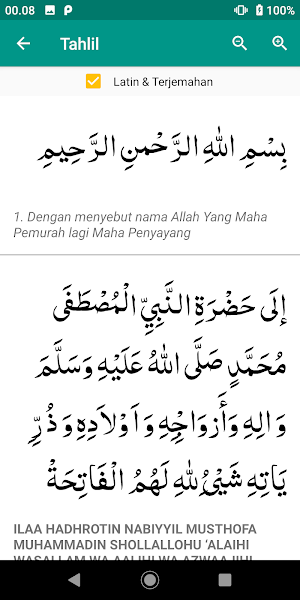 00.08
100%
Tahlil
Latin & Terjemahan
بِسْمِ اللهِ الرَّحْمنِ الرَّحِيمِ
1. Dengan menyebut nama Allah Yang Maha
Pemurah lagi Maha Penyayang
إِلَى حَضْرَةِ النَّبِيِّ الْمُصْطَفَى
مُحَمَّدٍ صَلَّى اللهُ عَلَيْهِ وَسَلَّمَ
وَالِهِ وَأَزْوَاجِهِ وَاَوْلَادِهِ وَذُرِّ
يَاتِهِ شَيْئُ لِلهِ لَهُمُ الْفَاتِحَةْ
ILAA HADHROTIN NABIYYIL MUSTHOFA
MUHAMMADIN SHOLLALLOHU ‘ALAIHI
WASALLAM WA AALIHI WA AZWAAJIHI